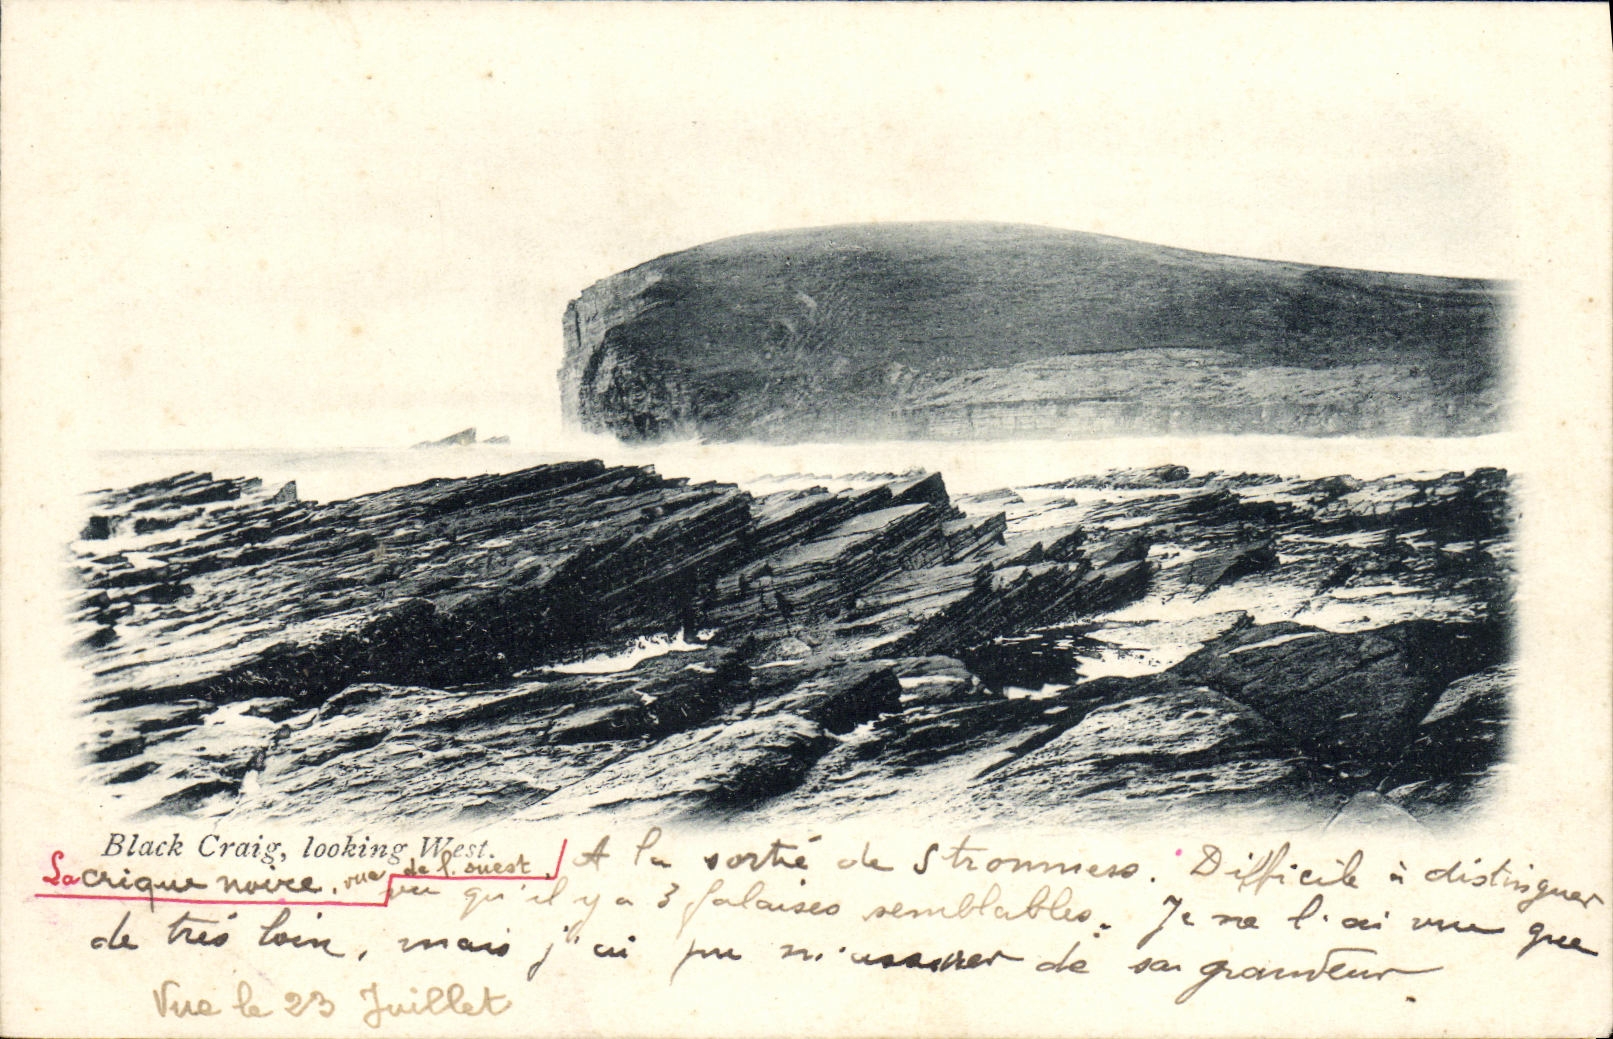 Black Craig, looking West.
La crique noire. vue de l'ouest. A la sortie de Stromness. Difficile à distinguer
vu qu'il y a 3 falaises semblables. Je ne l'ai vue que
de très loin, mais j'ai pu m'assurer de sa grandeur.
Vue le 23 Juillet